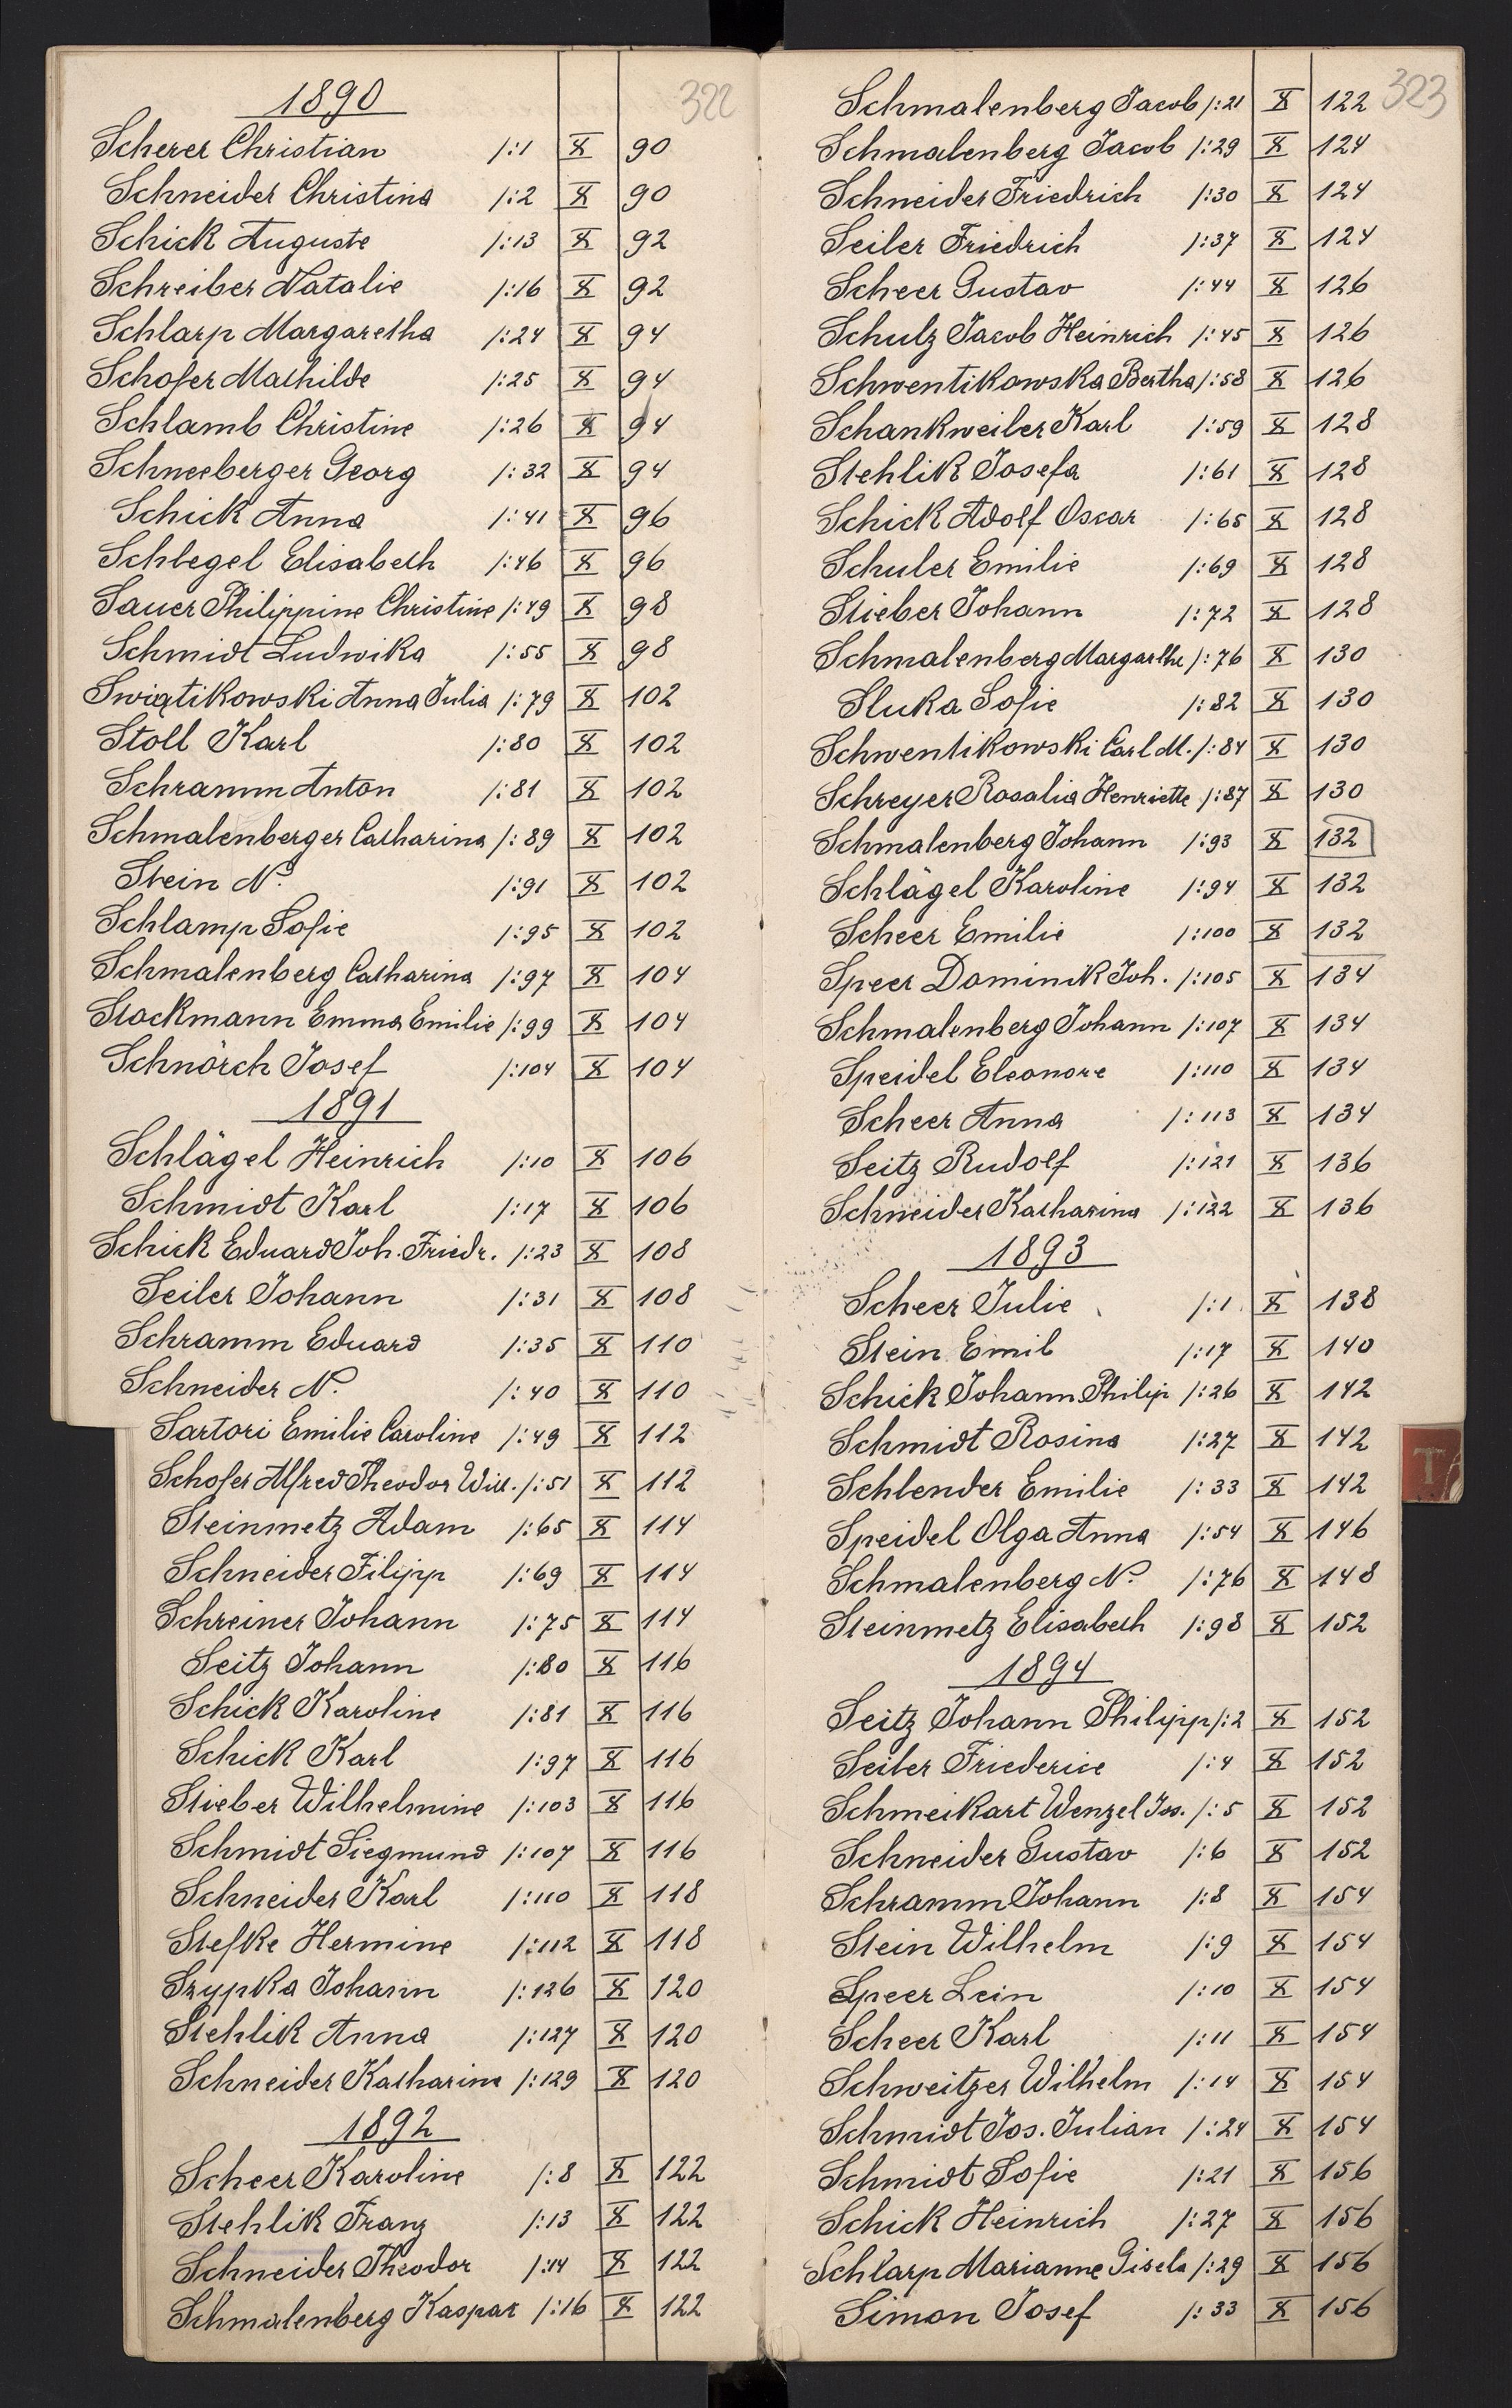 322
1890
Scherer Christian /:1 X 90
Schneider Christina /:2 X 90
Schick Auguste /:13 X 92
Schreiber Natalie /:16 X 92
Schlarp Margaretha /:24 X 94
Schofer Mathilde /:25 X 94
Schlamb Christine /:26 X 94
Schneeberger Georg /:32 X 94
Schick Anna /:41 X 96
Schlegel Elisabeth /:46 X 96
Sauer Philippine Christine /:49 X 98
Schmidt Ludwika /:55 X 98
Swiątikowski Anna Julia /:79 X 102
Stoll Karl /:80 X 102
Schramm Anton /:81 X 102
Schmalenberger Catharina /:89 X 102
Stein N. /:91 X 102
Schlamp Sofie /:95 X 102
Schmalenberg Catharina /:97 X 104
Stockmann Emma Emilie /:99 X 104
Schnörch Josef /:104 X 104
1891
Schlägel Heinrich /:10 X 106
Schmidt Karl /:17 X 106
Schick Eduard Joh. Friedr. /:23 X 108
Seiler Johann /:31 X 108
Schramm Eduard /:35 X 110
Schneider N. /:40 X 110
Sartori Emilie Caroline /:49 X 112
Schofer Alfred Theodor Will. /:51 X 112
Steinmetz Adam /:65 X 114
Schneider Filipp /:69 X 114
Schreiner Johann /:75 X 114
Seitz Johann /:80 X 116
Schick Karoline /:81 X 116
Schick Karl /:97 X 116
Stieber Wilhelmine /:103 X 116
Schmidt Siegmund /:107 X 116
Schneider Karl /:110 X 118
Stefke Hermine /:112 X 118
Szypka Johann /:126 X 120
Stehlik Anna /:127 X 120
Schneider Katharina /:129 X 120
1892
Scheer Karoline /:8 X 122
Stehlik Franz /:13 X 122
Schneider Theodor /:14 X 122
Schmalenberg Kaspar /:16 X 122
323
Schmalenberg Jacob /:21 X 122
Schmalenberg Jacob /:29 X 124
Schneider Friedrich /:30 X 124
Seiler Friedrich /:37 X 124
Scheer Gustav /:44 X 126
Schulz Jacob Heinrich /:45 X 126
Schwentikowska Bertha /:58 X 126
Schankweiler Karl /:59 X 128
Stehlik Josefa /:61 X 128
Schick Adolf Oscar /:65 X 128
Schuler Emilie /:69 X 128
Stieber Johann /:72 X 128
Schmalenberg Margarthe /:76 X 130
Sluka Sofie /:82 X 130
Schwentikowski Carl M. /:84 X 130
Schreyer Rosalia Henriette /:87 X 130
Schmalenberg Johann /:93 X 132
Schlägel Karoline /:94 X 132
Scheer Emilie /:100 X 132
Speer Dominik Joh. /:105 X 134
Schmalenberg Johann /:107 X 134
Speidel Eleonore /:110 X 134
Scheer Anna /:113 X 134
Seitz Rudolf /:121 X 136
Schneider Katharina /:122 X 136
1893
Scheer Julie /:1 X 138
Stein Emil /:17 X 140
Schick Johann Philip /:26 X 142
Schmidt Rosina /:27 X 142
Schlender Emilie /:33 X 142
Speidel Olga Anna /:54 X 146
Schmalenberg N. /:76 X 148
Steinmetz Elisabeth /:98 X 152
1894
Seitz Johann Philipp /:2 X 152
Seiler Friederice /:4 X 152
Schmeikart Wenzel Jos. /:5 X 152
Schneider Gustav /:6 X 152
Schramm Johann /:8 X 154
Stein Wilhelm /:9 X 154
Speer Lein /:10 X 154
Scheer Karl /:11 X 154
Schweitzer Wilhelm /:14 X 154
Schmidt Jos. Julian /:24 X 154
Schmidt Sofie /:21 X 156
Schick Heinrich /:27 X 156
Schlarp Marianne Gisela /:29 X 156
Simon Josef /:33 X 156
T